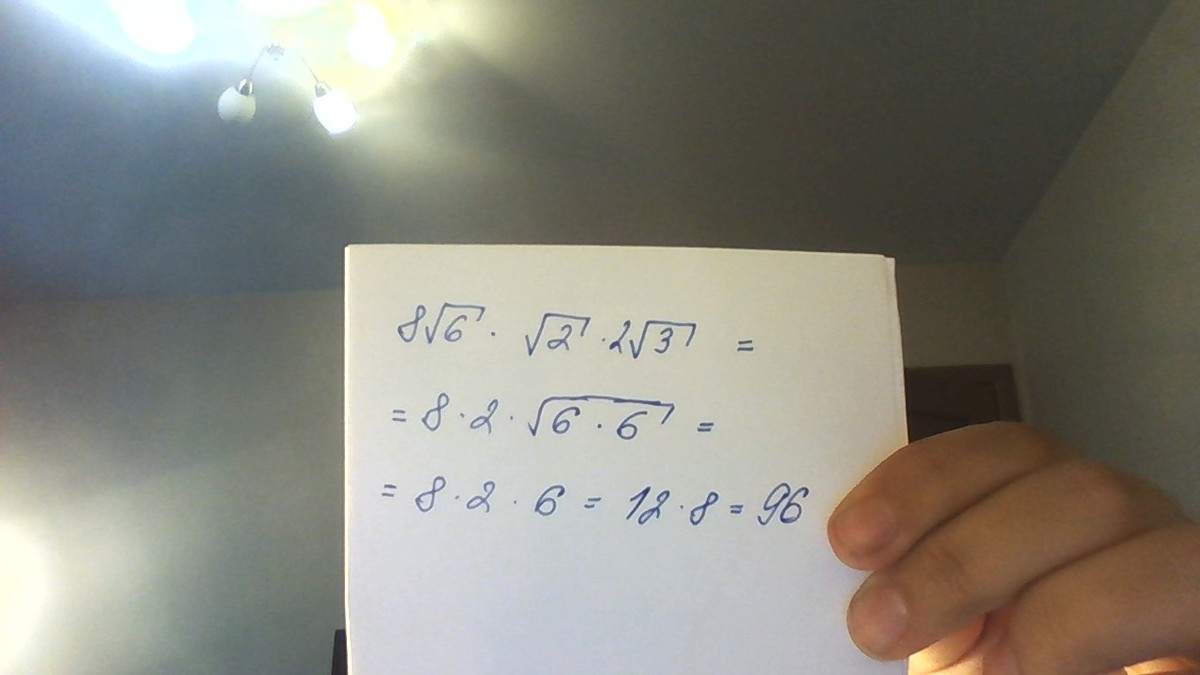 8√6 · √2 · 2√3 =
= 8 · 2 · √6 · 6 =
= 8 · 2 · 6 = 12 · 8 = 96